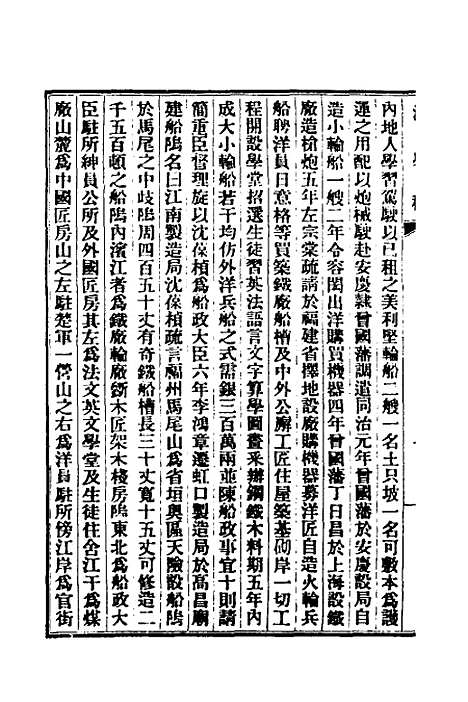 內地人學習駕駛以已租之美利堅輪船二艘一名土只坡一名可敷本爲護
運之用配以炮械駛赴安慶隸曾國藩調遣同治元年曾國藩於安慶設局自
造小輪船一艘二年令容閎出洋購買機器四年曾國藩丁日昌於上海設鐵
廠造槍炮五年左宗棠疏請於福建省擇地設廠購機器募洋匠自造火輪兵
船聘洋員日意格等買築鐵廠船槽及中外公廨工匠住屋築基砌岸一切工
程開設學堂招選生徒習英法語言文字算學圖畫采辦鋼鐵木料期五年內
成大小輪船若干均仿外洋兵船之式需銀三百萬兩並陳船政事宜十則請
簡重臣督理旋以沈葆楨爲船政大臣六年李鴻章遷虹口製造局於高昌廟
建船隖名曰江南製造局沈葆楨疏言福州馬尾山爲省垣奧區天險設船隖
於馬尾之中歧隖周四百五十丈有奇鐵船槽長三十丈寬十五丈可修造二
千五百頓之船隖內濱江者爲鐵廠輪廠斲木匠架木棧房隖東北爲船政大
臣駐所紳員公所及外國匠房其左爲法文英文學堂及生徒住舍江干爲煤
廠山麓爲中國匠房山之左駐楚軍一營山之右爲洋員駐所傍江岸爲官街